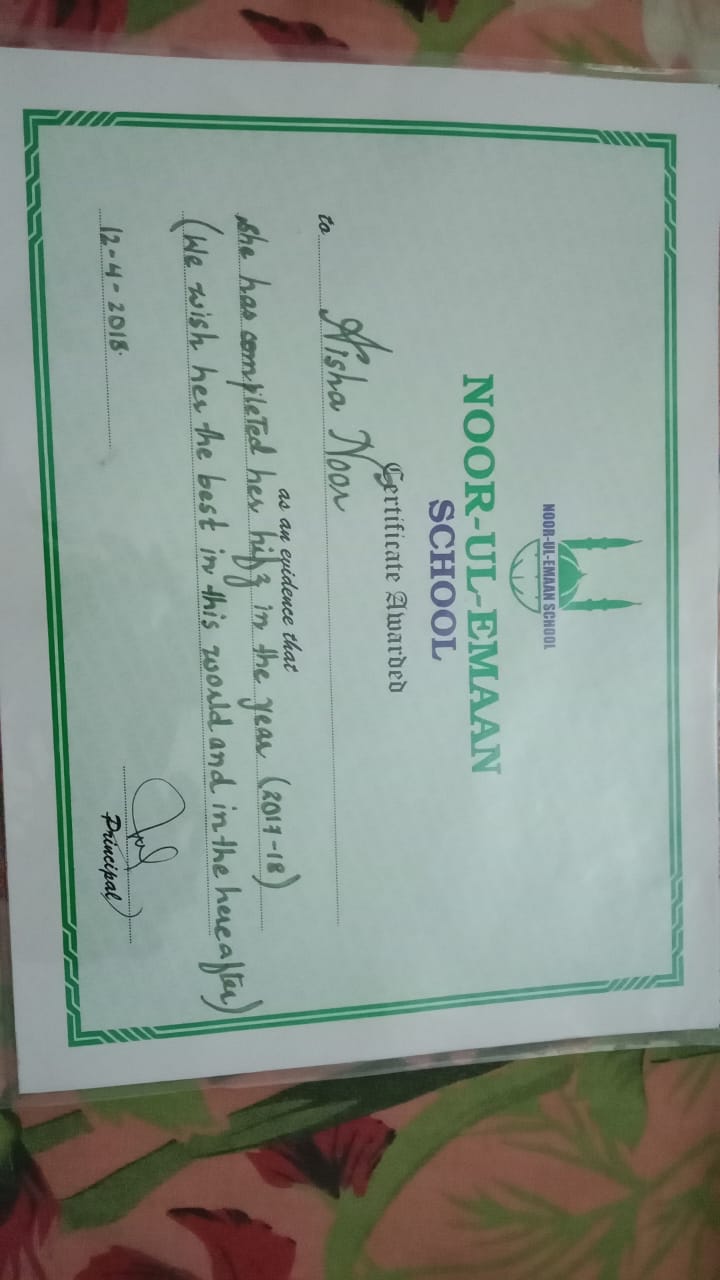 NOOR-UL-EMAAN SCHOOL
NOOR-UL-EMAAN
SCHOOL
Certificate Awarded
to Aisha Noor
as an evidence that
she has completed her hifz in the year (2017-18)
(We wish her the best in this world and in the hereafter)
12-4-2018.
Principal